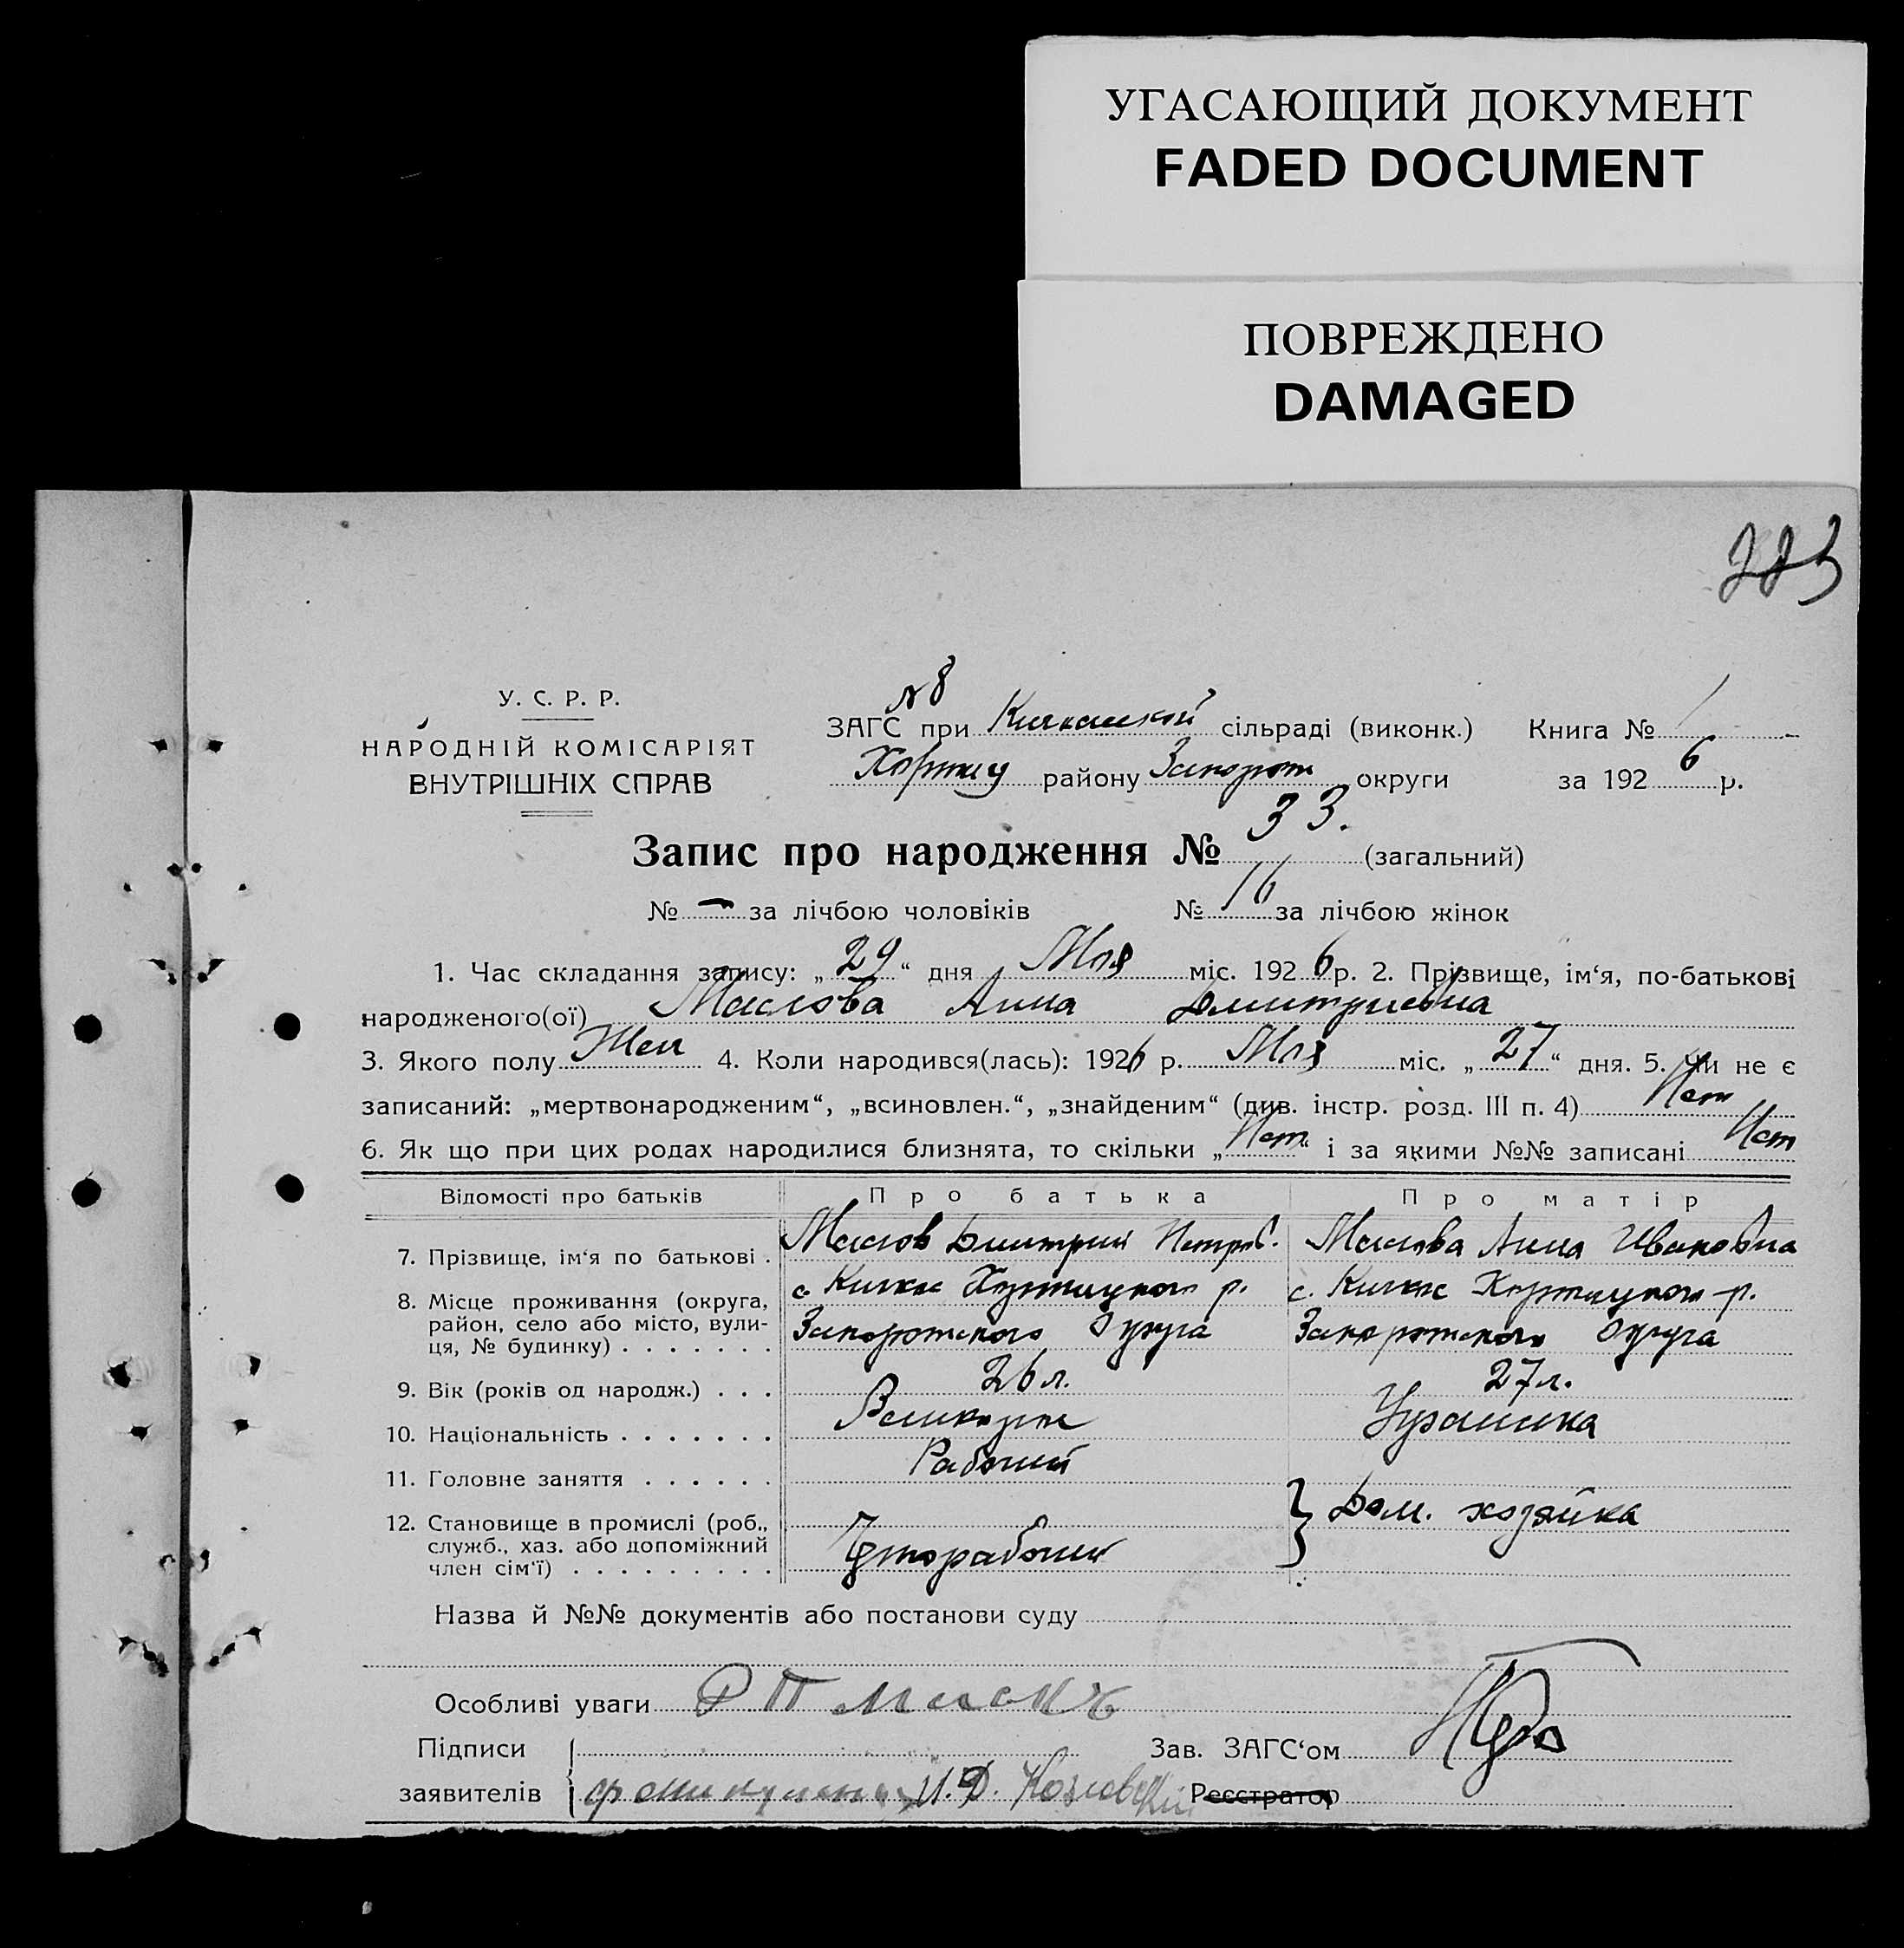 УГАСАЮЩИЙ ДОКУМЕНТ
FADED DOCUMENT
ПОВРЕЖДЕНО
DAMAGED
У. С. Р. Р.
НАРОДНІЙ КОМІСАРІЯТ
ВНУТРІШНІХ СПРАВ
№ 8
ЗАГС при Кичкасской сільраді (виконк.) Книга № 1
Хортиц району Запорож округи за 1926 р.
Запис про народження № 33. (загальний)
№ — за лічбою чоловіків № 16 за лічбою жінок
1. Час складання запису: „29“ дня Мая міс. 1926 р. 2. Прізвище, ім‘я, по-батькові
народженого(ої) Маслова Анна Дмитриевна
3. Якого полу Жен 4. Коли народився(лась): 1926 р. Мая міс. „27“ дня. 5. Чи не є
записаний: „мертвонародженим“, „всиновлен.“, „знайденим“ (див. інстр. розд. III п. 4) Нет
6. Як що при цих родах народилися близнята, то скільки „Нет“ і за якими №№ записані Нет
Відомості про батьків Про батька Про матір
7. Прізвище, ім‘я по батькові . Маслов Дмитрий Петров. Маслова Анна Ивановна
8. Місце проживання (округа, с. Кичкас Хортицкого р. с. Кичкас Хортицкого р.
район, село або місто, вули-
ця, № будинку) . . . . . . . Запорожского Округа Запорожского Округа
9. Вік (років од народж.) . . . 26 л. 27 л.
10. Національність . . . . . . . Великорос Украинка
11. Головне заняття . . . . . . Рабочий
12. Становище в промислі (роб., Дом. хозяйка
служб., хаз. або допоміжний
член сім‘ї) . . . . . . . . . . Чернорабочий
Назва й №№ документів або постанови суду
Особливі уваги
Підписи
Зав. ЗАГС‘ом
заявителів И. Ф. Козловский Реєстратор